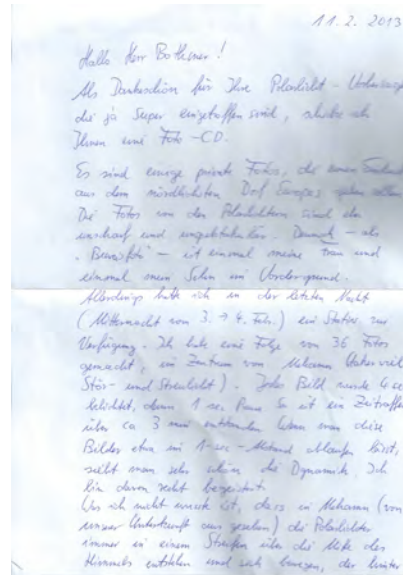 11.2.2013
Hallo Herr Bothmer!
Als Dankeschön für Ihre Polarlicht-Vorhersage,
die ja super eingetroffen sind, schicke ich
Ihnen eine Foto-CD.
Es sind einige private Fotos, die einen Eindruck
aus dem nördlichsten Dorf Europas geben sollen.
Die Fotos von den Polarlichtern sind eher
unscharf und unspektakulär. Dennoch - als
"Beweisfoto" - ist einmal meine Frau und
einmal mein Sohn im Vordergrund.
Allerdings hatte ich in der letzten Nacht
(Mitternacht vom 3. → 4. Feb.) ein Stativ zur
Verfügung. Ich habe eine Folge von 36 Fotos
gemacht, im Zentrum von Mehamn (daher viel
Stör- und Streulicht). Jedes Bild wurde 4 se
belichtet, dann 1 sec. Pause. So ist ein Zeitraffer
über ca 3 min entstanden. Wenn man diese
Bilder etwa im 1-sec-Abstand ablaufen lässt,
sieht man sehr schön die Dynamik. Ich
bin davon sehr begeistert.
Was ich nicht wusste ist, dass in Mehamn (von
unserer Unterkunft aus gesehen) die Polarlichter
immer in einem Streifen über die Mitte des
Himmels entstehen und sich bewegen, der hinter